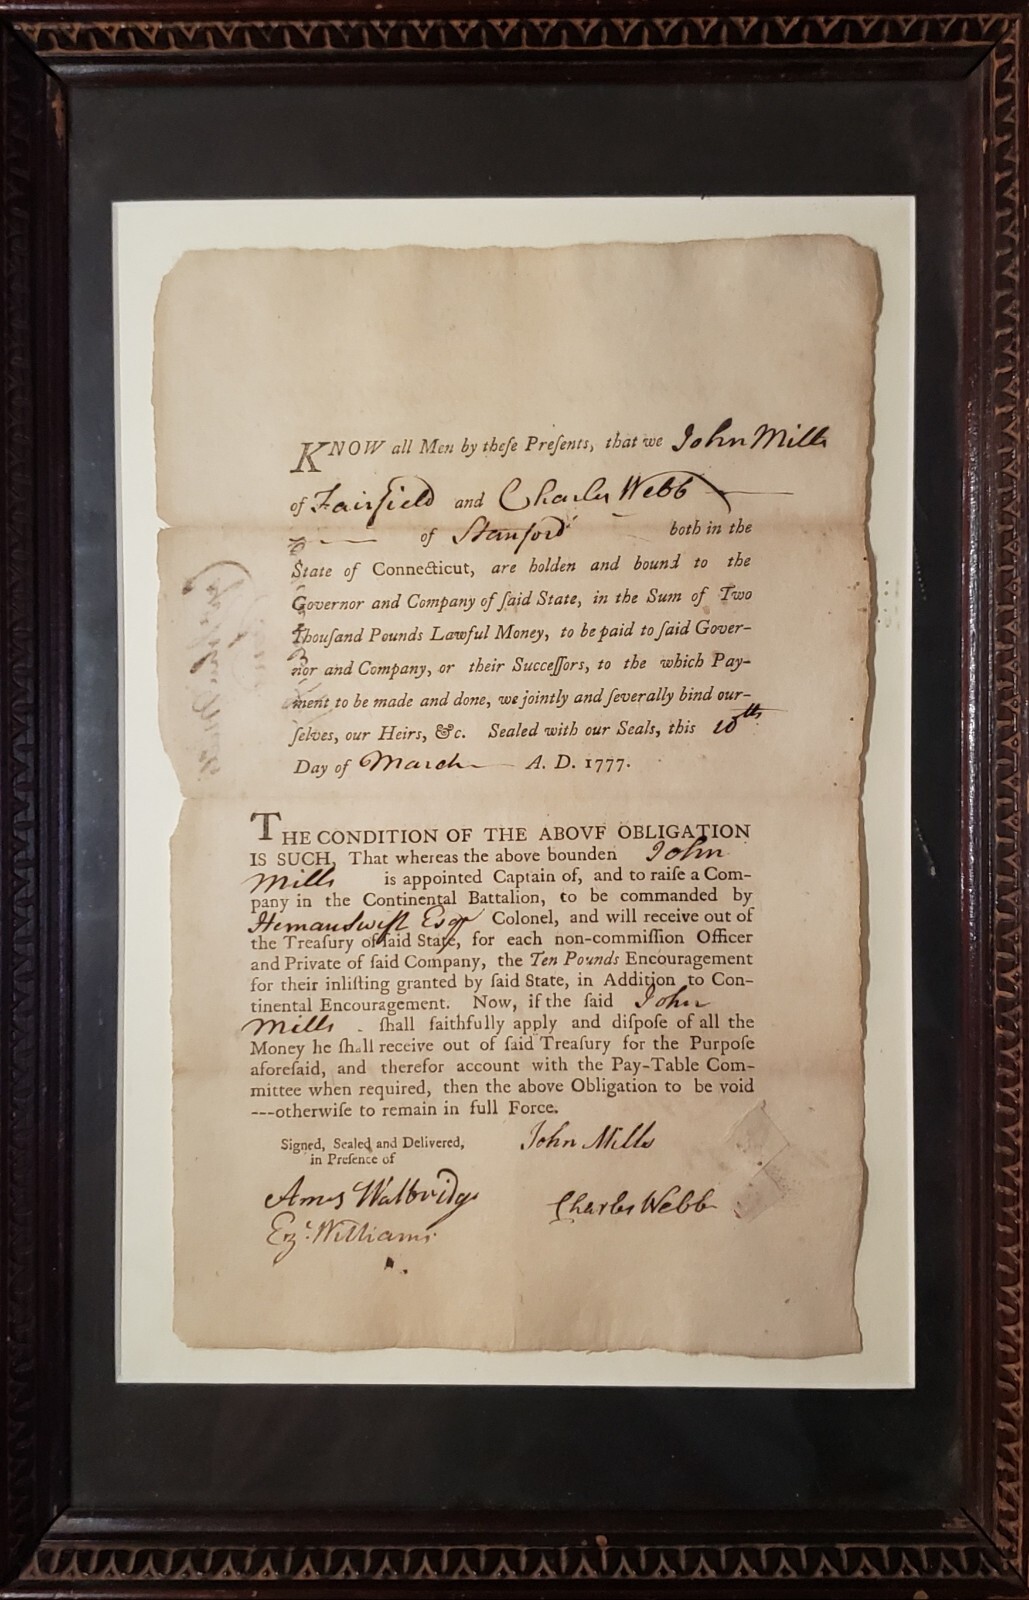 KNOW all Men by theſe Preſents, that we John Mills
of Fairfield and Charles Webb
of Stanford both in the
State of Connecticut, are holden and bound to the
Governor and Company of ſaid State, in the Sum of Two
Thouſand Pounds Lawful Money, to be paid to ſaid Gover-
nor and Company, or their Succeſſors, to the which Pay-
ment to be made and done, we jointly and ſeverally bind our-
ſelves, our Heirs, &c. Sealed with our Seals, this 10th
Day of March A. D. 1777.
THE CONDITION OF THE ABOVF OBLIGATION
IS SUCH, That whereas the above bounden John
Mills is appointed Captain of, and to raiſe a Com-
pany in the Continental Battalion, to be commanded by
Heman Swift Esqr Colonel, and will receive out of
the Treaſury of ſaid State, for each non-commiſſion Officer
and Private of ſaid Company, the Ten Pounds Encouragement
for their inliſting granted by ſaid State, in Addition to Con-
tinental Encouragement. Now, if the ſaid John
Mills ſhall faithfully apply and diſpoſe of all the
Money he ſhall receive out of ſaid Treaſury for the Purpoſe
aforeſaid, and therefor account with the Pay-Table Com-
mittee when required, then the above Obligation to be void
---otherwiſe to remain in full Force.
Signed, Sealed and Delivered,
in Preſence of
John Mills
Amos Walbridge
Charles Webb
Ezr. Williams